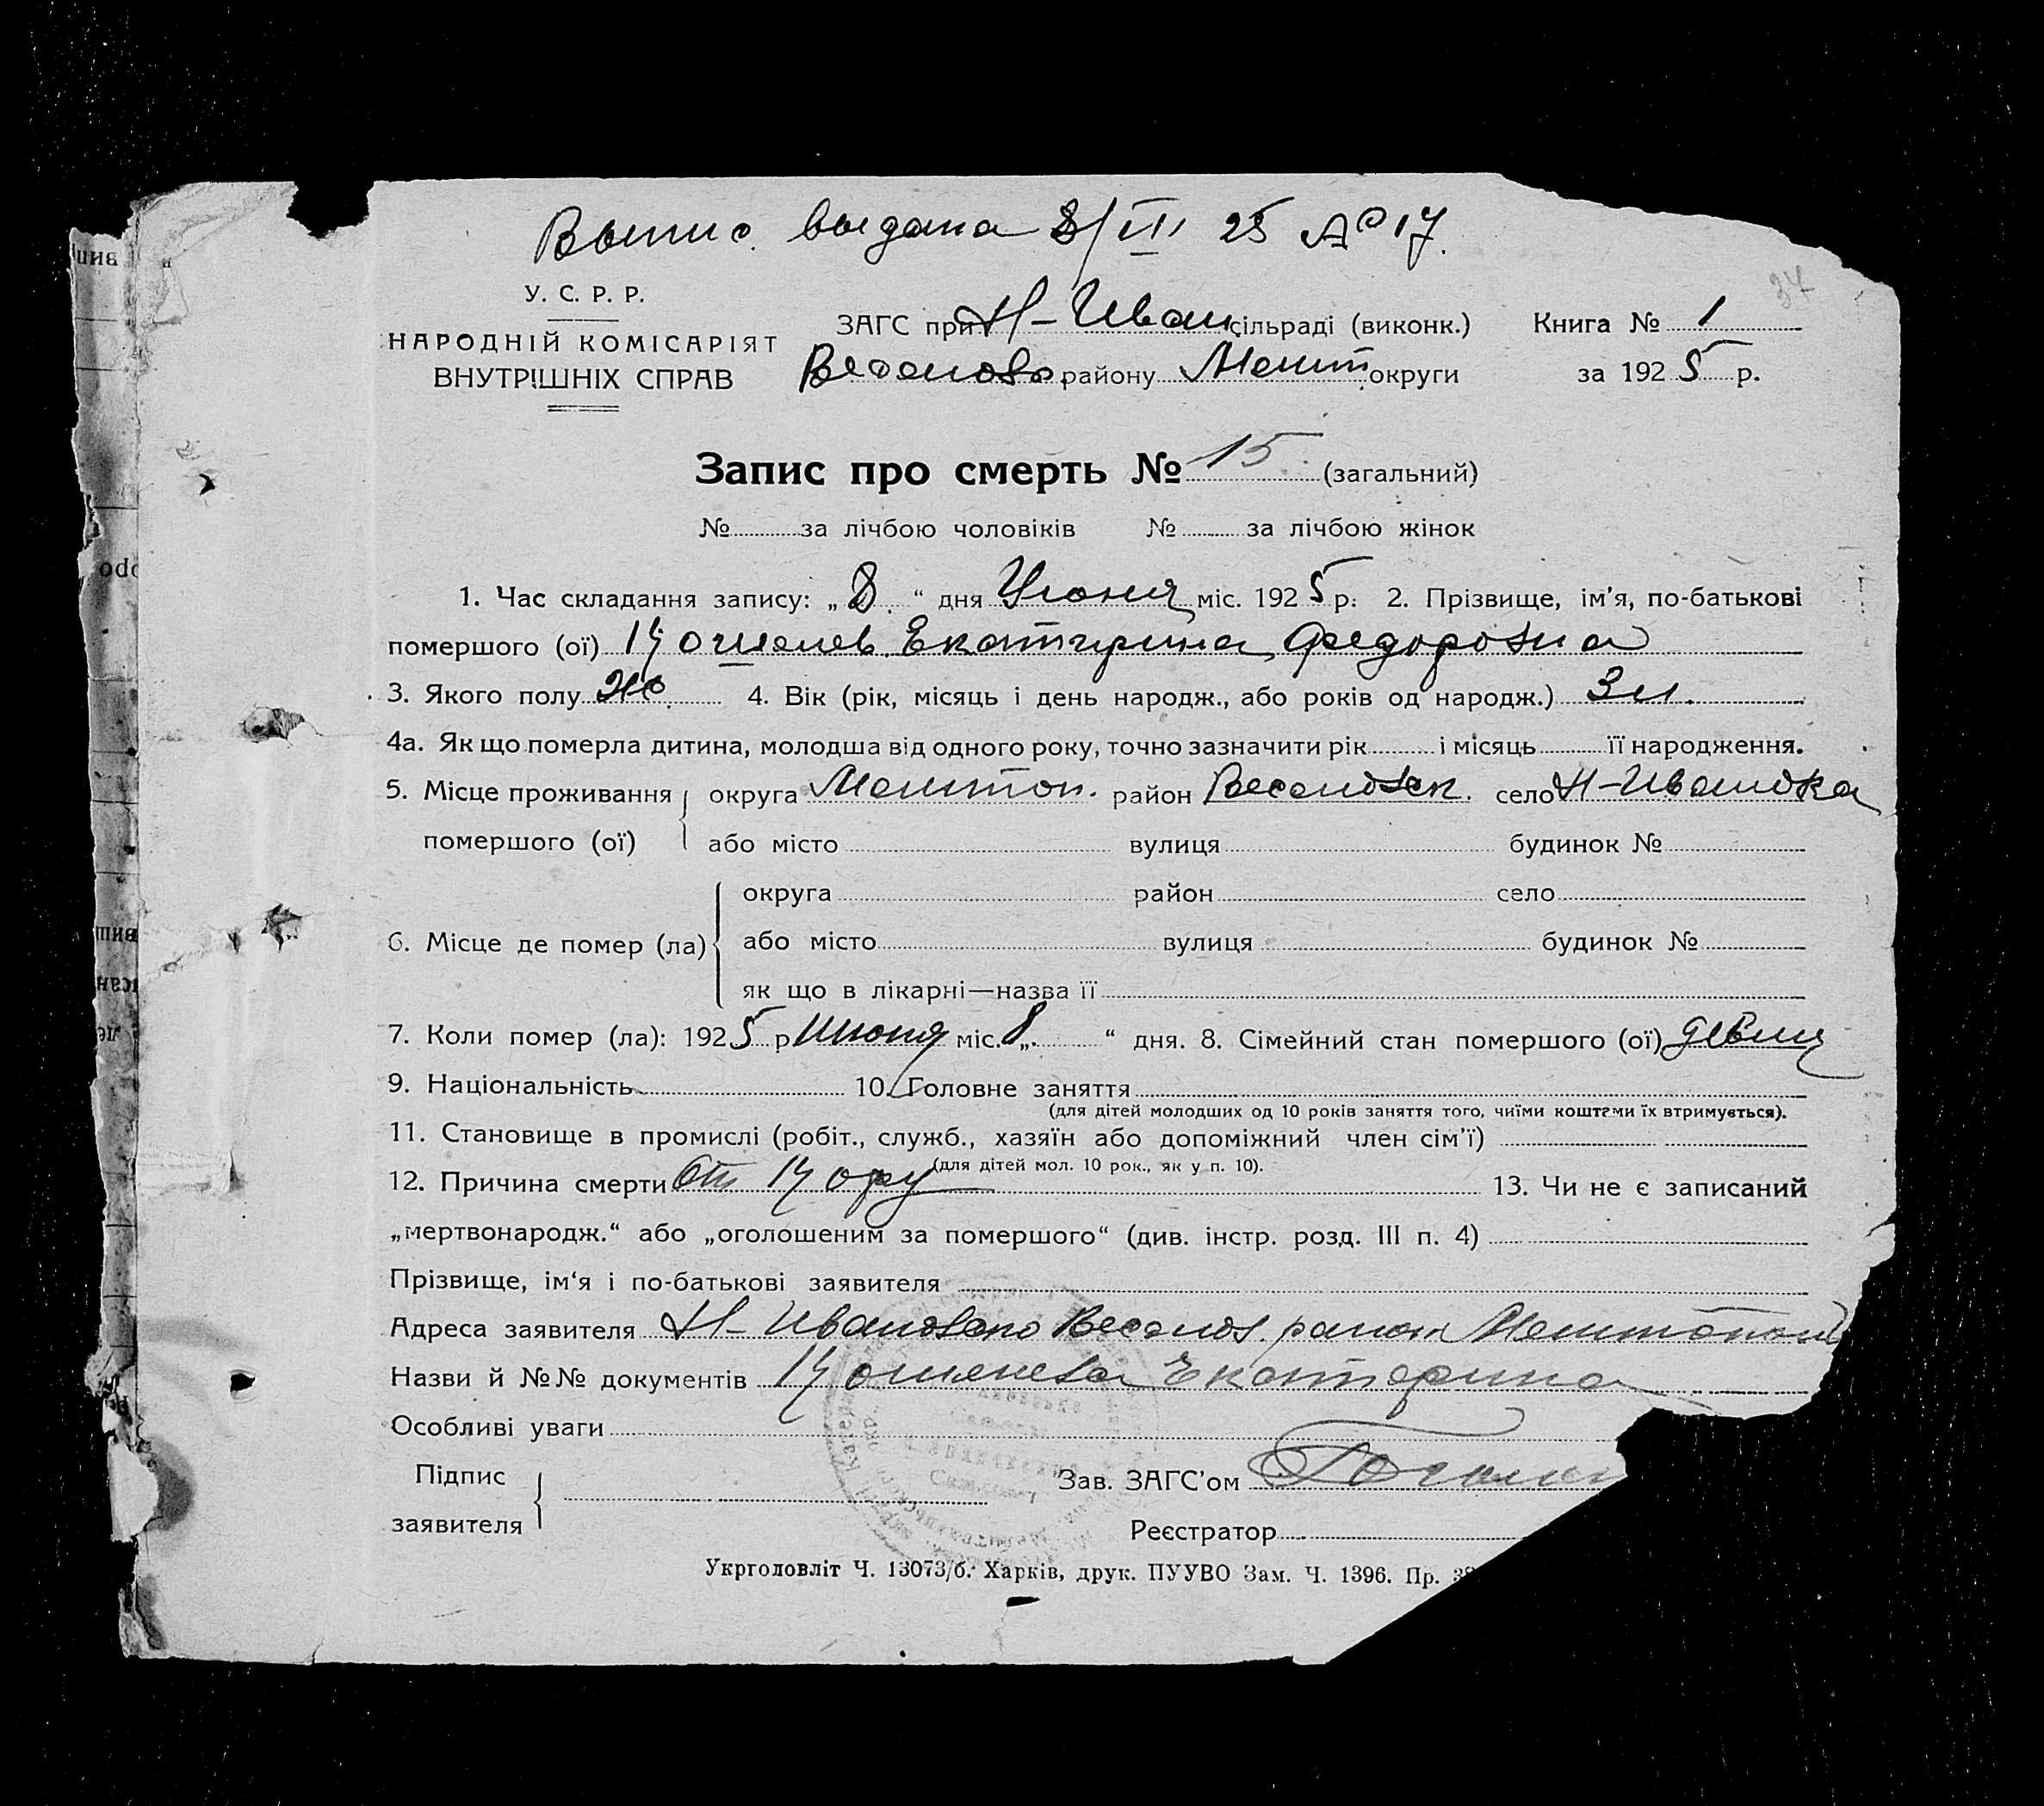 Выпис. выдана 8/VII 25 № 17.
34
У. С. Р. Р.
НАРОДНІЙ КОМІСАРІЯТ
ВНУТРІШНІХ СПРАВ
ЗАГС при Н-Иван сільраді (виконк.) Книга № 1
Веселов. району Мелит округи за 1925 р.
Запис про смерть № 15 (загальний)
№ за лічбою чоловіків № за лічбою жінок
1. Час складання запису: „8“ дня Июня міс. 1925 р. 2. Прізвище, ім’я, по-батькові
помершого (ої) Кошелев. Екатирина Федоровна
3. Якого полу Ж. 4. Вік (рік, місяць і день народж., або років од народж.) 3 м.
4а. Як що померла дитина, молодша від одного року, точно зазначити рік і місяць її народження.
5. Місце проживання округа Мелитоп. район Веселовск. село Н-Ивановка
помершого (ої) або місто вулиця будинок №
округа район село
6. Місце де помер (ла) або місто вулиця будинок №
як що в лікарні—назва її
7. Коли помер (ла): 1925 р Июня міс. „8“ дня. 8. Сімейний стан помершого (ої) девиц
9. Національність 10. Головне заняття
(для дітей молодших од 10 років заняття того, чиїми коштами їх втримується).
11. Становище в промислі (робіт., служб., хазяїн або допоміжний член сім’ї)
(для дітей мол. 10 рок., як у п. 10).
12. Причина смерти От Кору 13. Чи не є записаний
„мертвонародж.“ або „оголошеним за помершого“ (див. інстр. розд. III п. 4)
Прізвище, ім‘я і по-батькові заявителя
Адреса заявителя Н-Ивановка Веселов. район
Назви й №№ документів Кошелева Екатерина
Особливі уваги
Підпис
заявителя
Зав. ЗАГС’ом
Реєстратор
Укрголовліт Ч. 13073/б. Харків, друк. ПУУВО Зам. Ч. 1396. Пр.